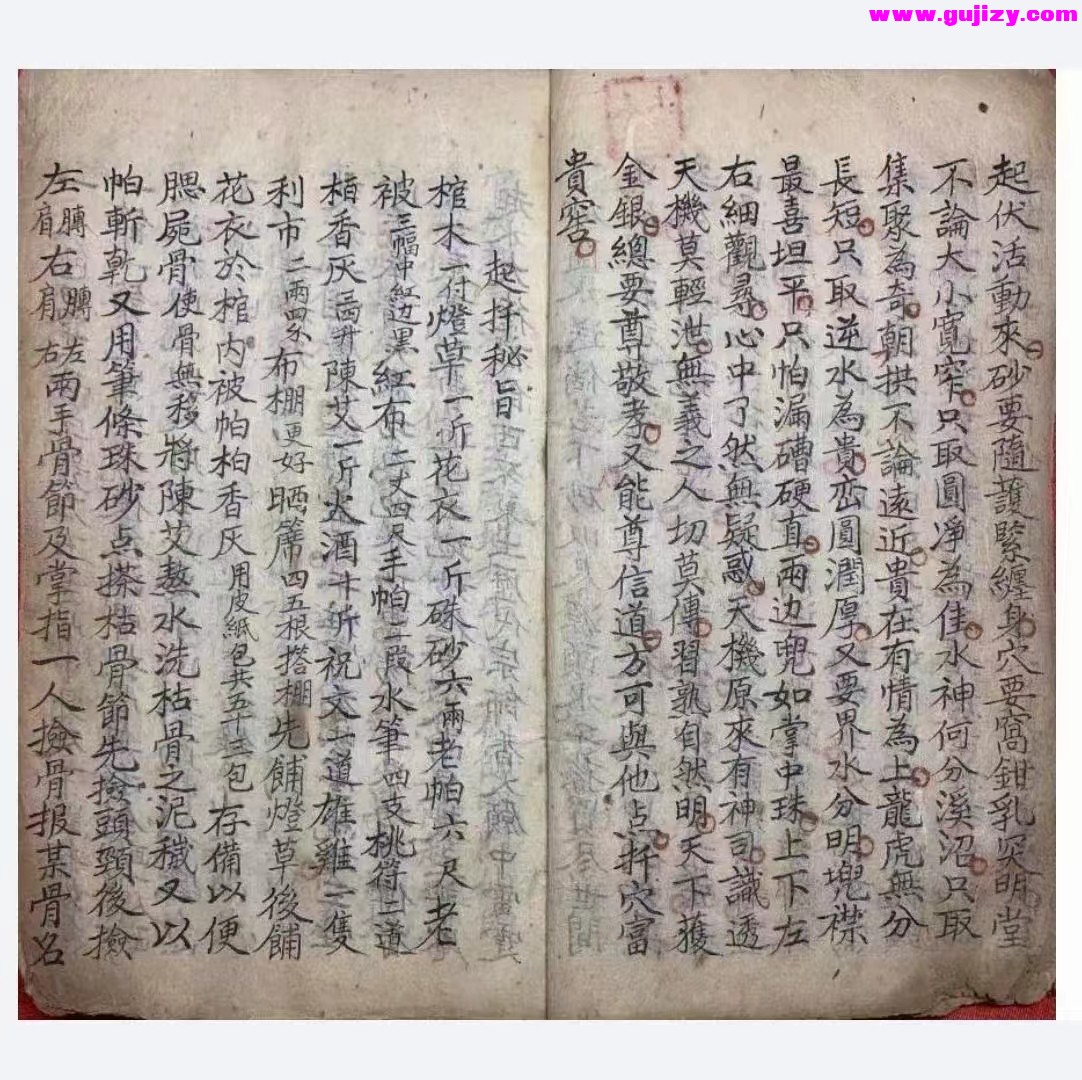 www.gujizy.com
起伏活動來砂要隨護緊纏身穴要窩鉗乳突明堂
不論大小寬窄只取圓淨為佳水神何分溪沼只取
集聚為奇朝拱不論遠近貴在有情為上龍虎無分
長短只取逆水為貴峦圓潤厚又要界水分明兜襟
最喜坦平只怕漏磧硬直兩边兜如掌中珠上下左
右細觀尋心中了然無疑惑天機原來有神司識透
天機莫輕泄無義之人切莫傳習熟自然明天下獲
金銀總要尊敬孝又能尊信道方可與他点扦穴富
貴窖
起扦秘旨
棺木一付燈草一斤花衣一斤硃砂六兩老帕六尺老
被三幅中紅边黑紅布二丈四尺手帕二段水筆四支桃符二道
栢香灰陳艾一斤火酒十斤祝文一道雄雞二隻
利市二兩四布棚更好晒蓆四五根搭棚先餔燈草後餔
花衣於棺内被帕柏香灰用皮紙包共五十三包存備以便
腮屍骨使骨無移將陳艾熬水洗枯骨之泥穢又以
帕斬乾又用筆條珠砂点搽枯骨節先撿頭頸後撿
左肩膊右肩膊左右兩手骨節及掌指一人撿骨报某骨名